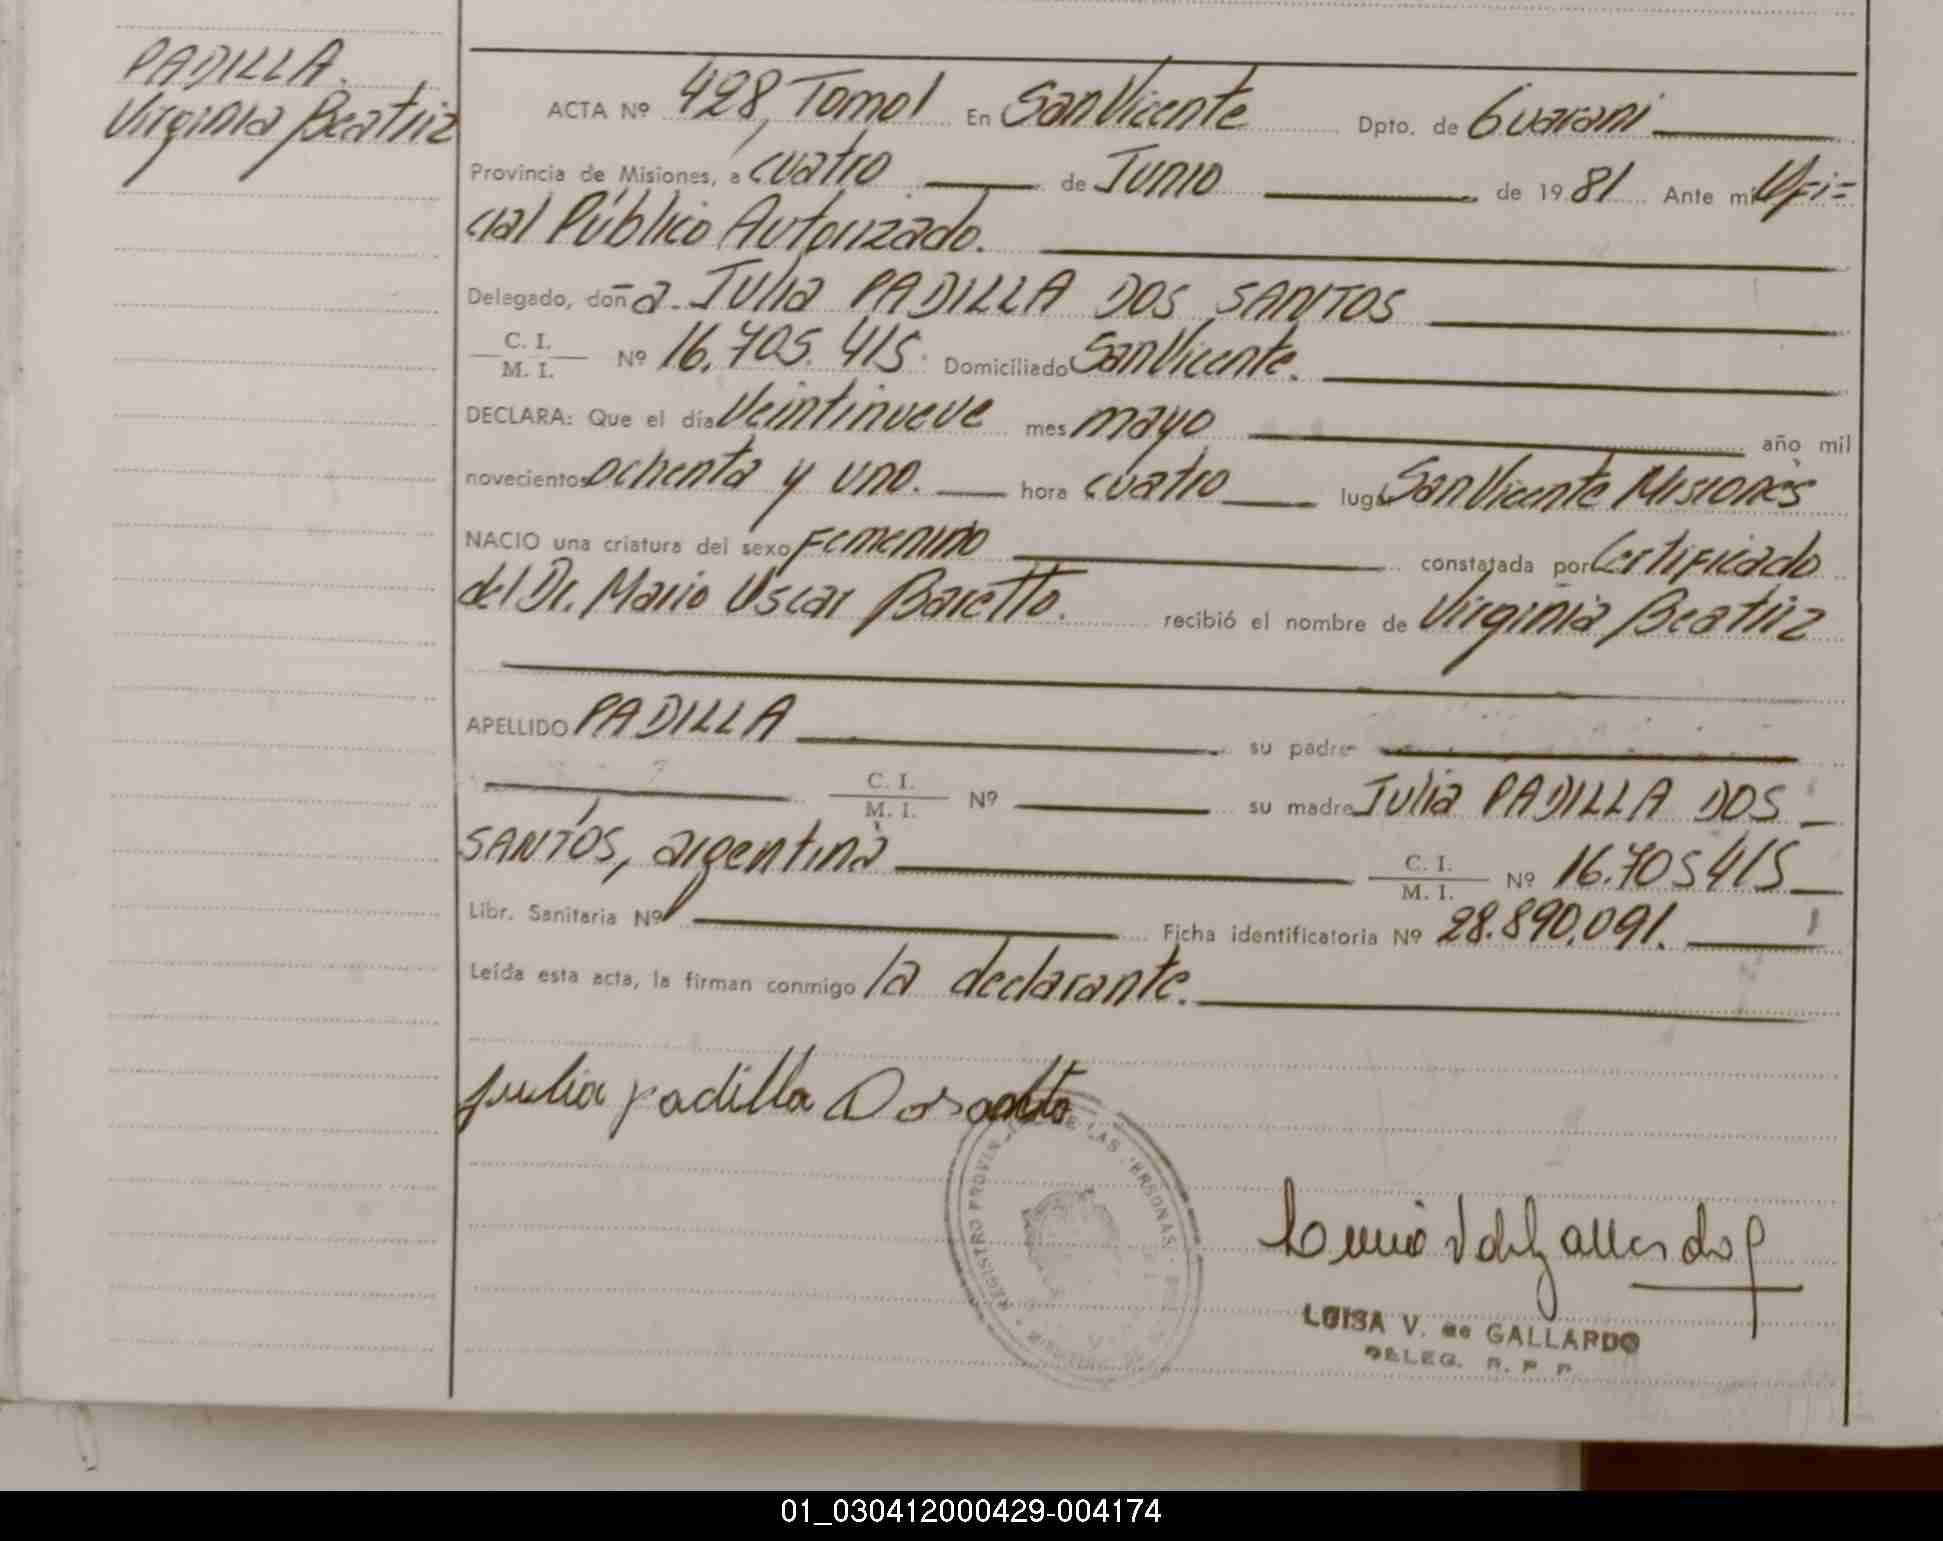 PADILLA.
Virginia Beatriz
ACTA Nº 428, Tomo I En San Vicente Dpto. de Guarani
Provincia de Misiones, a cuatro de Junio de 1981 Ante mi Ofi=
cial Público Autorizado.
Delegado, doña. Julia PADILLA DOS SANTOS
C. I.
M. I. Nº 16.705.415. Domiciliado San Vicente.
DECLARA: Que el día Veintinueve mes mayo año mil
novecientos ochenta y uno. hora cuatro lugar San Vicente Misiones
NACIO una criatura del sexo Femenino constatada por Certificado
del Dr. Mario Oscar Baretto. recibió el nombre de Virginia Beatriz
APELLIDO PADILLA su padre
C. I.
M. I. Nº su madre Julia PADILLA DOS
SANTOS, argentina C. I.
M. I. Nº 16.705415
Libr. Sanitaria Nº Ficha identificatoria Nº 28.890.091.
Leída esta acta, la firman conmigo la declarante.
Julia Padilla Do santo
REGISTRO PROVIN DE LAS PERSONAS
LUISA V. de GALLARDO
DELEG. R. P. P.
01_030412000429-004174